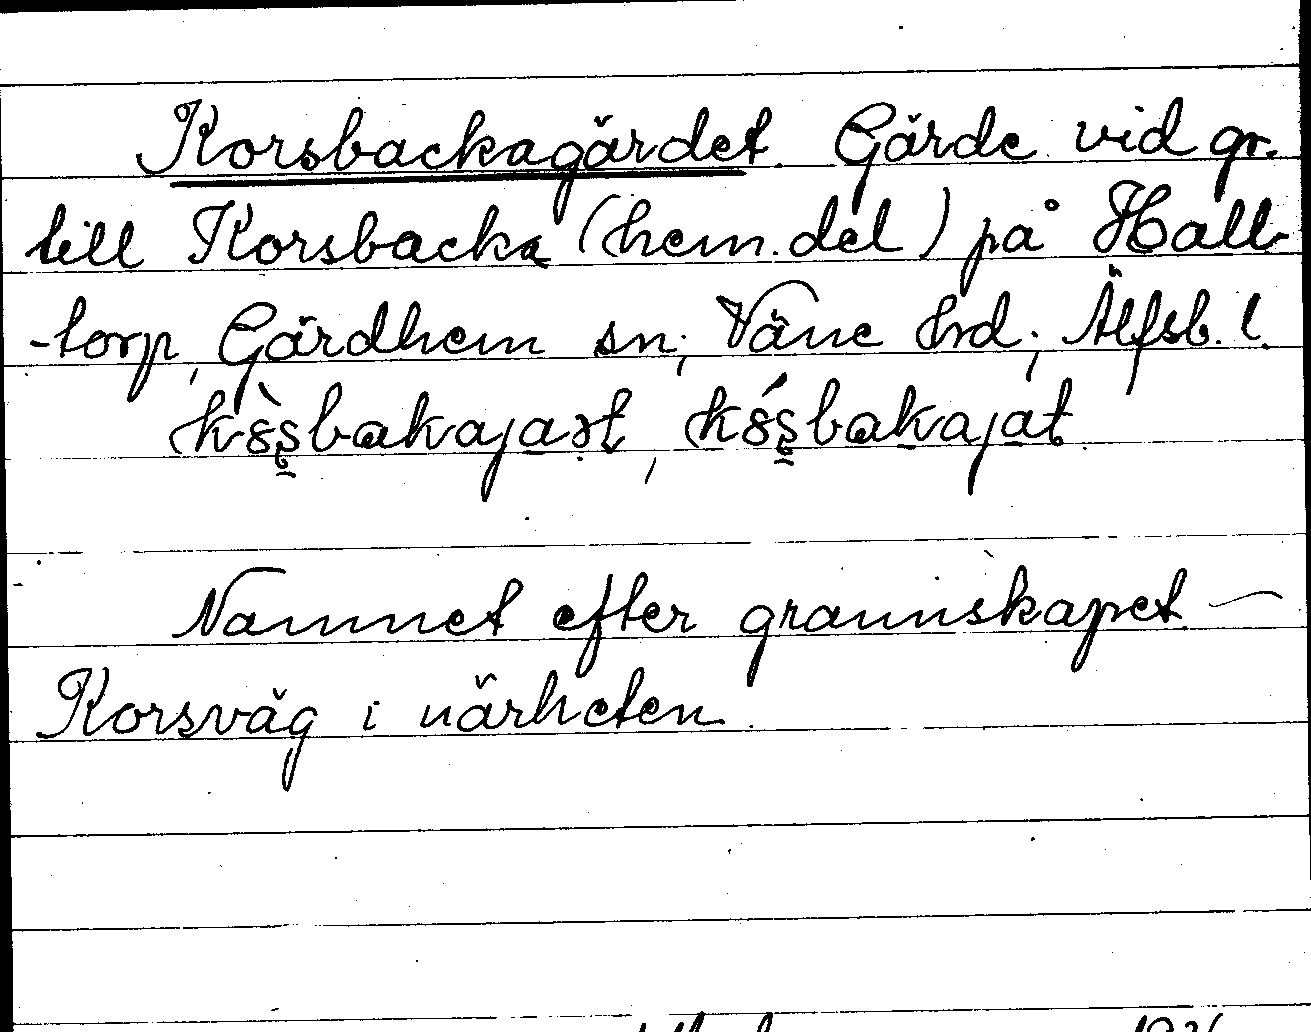 Korsbackagärdet. Gärde vid gr.
till Korsbacka (hem.del) på Hall-
-torp, Gärdhem sn; Väne hrd; Älfsb. l.
Namnet efter grannskapet —
Korsväg i närheten.